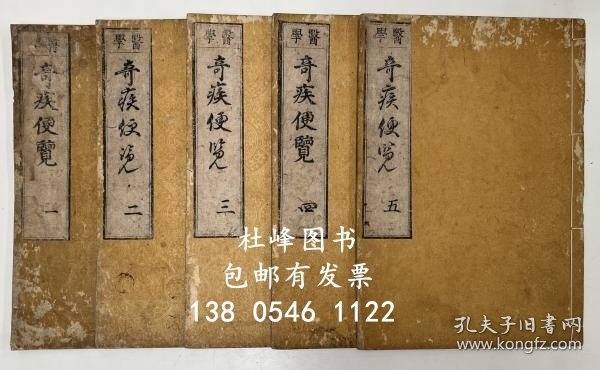 醫學
奇疾便覽
一
醫學
奇疾便览
二
醫學
奇疾便览
三
醫學
奇疾便覽
四
醫學
奇疾便览
五
杜峰图书
包邮有发票
138 0546 1122
孔夫子旧书网
www.kongfz.com